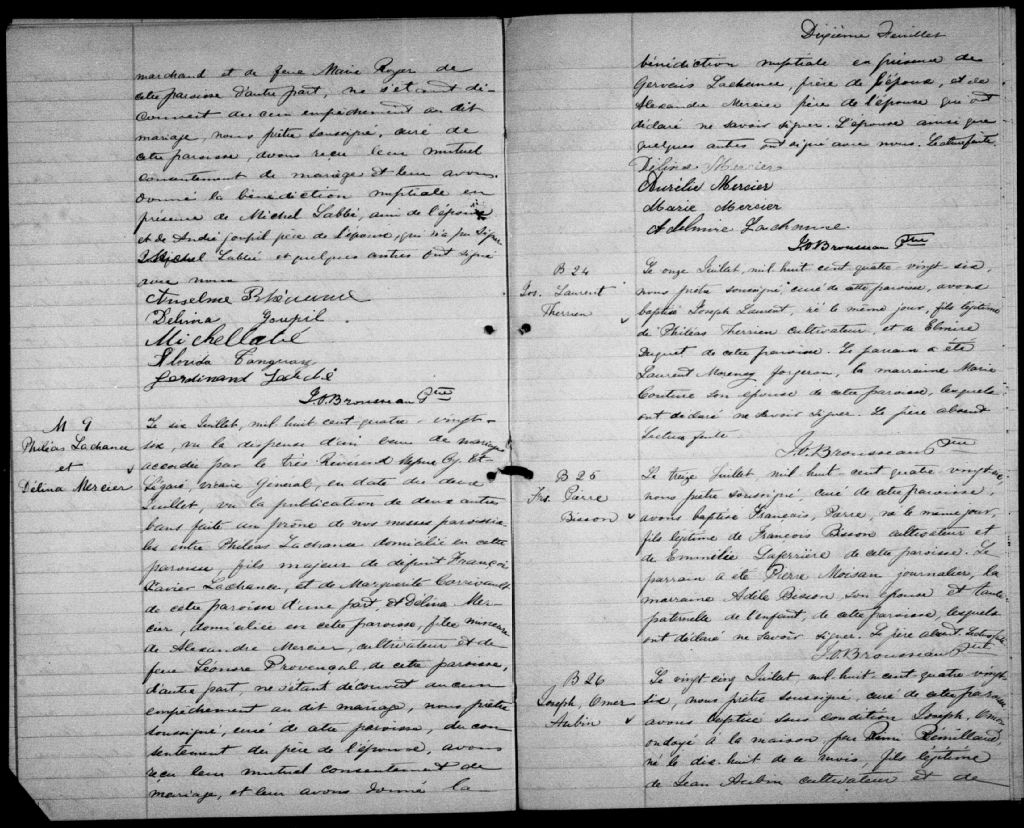 marchand et de feue Marie Royer de
cette paroisse d'autre part, ne s'etant dé-
couvert aucun empêchement au dit
mariage, nous prêtre soussigné, curé de
cette paroisse, avons reçu leur mutuel
consentement de mariage et leur avons
donné la bénédiction nuptiale en
présence de Michel Labbé, ami de l'époux
et de André Goupil père de l'épouse, qui n'a pu signer
Michel Labbé et quelques autres ont signé
avec nous
Anselme
Delvina Goupil
Michel labé
Florida Tanguay
Ferdinand Labbé
J.O. Brousseau Ptre
M 9
Philéas Lachance
et
Délina Mercier
Le six Juillet, mil huit cent quatre-vingt-
six, vu la dispense d'un banc de mariage
accordée par le très Révérend Mgneur Cy. Et.
Légaré, vicaire Général, en date du deux
Juillet, vu la publication de deux autres
bans faite au prône de nos messes paroissia-
les entre Philéas Lachance domicilié en cette
paroisse, fils majeur de défunt François
Xavier Lachance, et de Marguerite Corrivault
de cette paroisse d'une part, et Délina Mer-
cier, domiciliée en cette paroisse, fille mineure
de Alexandre Mercier, cultivateur et de
feue Léonore Provençal de cette paroisse,
d'autre part, ne s'étant découvert aucun
empêchement au dit mariage, nous prêtre
soussigné, curé de cette paroisse, du con-
sentement du père de l'épouse, avons
reçu leur mutuel consentement de
mariage, et leur avons donné la
Dixième Feuillet
bénédiction nuptiale en présence de
Gervais Lachance, frère de l'époux, et de
Alexandre Mercier père de l'épouse qui ont
déclaré ne savoir signer. L'épouse ainsi que
quelques autres ont signé avec nous. Lecture faite.
Délina Mercier
Aurélie Mercier
Marie Mercier
Adelmire Lachance
J.O. Brousseau Ptre
B 24
Jos. Laurent
Therrien
Le onze Juillet, mil huit cent quatre vingt-six,
nous prêtre soussigné, curé de cette paroisse, avons
baptisé Joseph Laurent, né le même jour, fils légitime
de Philéas Therrien cultivateur, et de Elmire
Duquet de cette paroisse. Le parrain a été
Laurent Morency forgeron, la marraine Marie
Couture son épouse de cette paroisse, lesquels
ont déclaré ne savoir signer. Le père absent
Lecture faite
J.O. Brousseau Ptre
B 26
Frs. Pierre
Bisson
Le treize Juillet, mil huit cent quatre vingt-six,
nous prêtre soussigné, curé de cette paroisse,
avons baptisé François, Pierre, né le même jour,
fils légitime de François Bisson cultivateur et
de Emmélie Laferrière de cette paroisse. Le
parrain a été Pierre Moisan journalier, la
marraine Adèle Bisson son épouse et tante
paternelle de l'enfant, de cette paroisse, lesquels
ont déclaré ne savoir signer. Le père absent. Lecture faite
J.O. Brousseau Ptre
B 26
Joseph, Omer
Aubin
Le vingt cinq Juillet mil huit cent quatre vingt-
six, nous prêtre soussigné, curé de cette paroisse
avons baptisé sous condition Joseph, Omer
ondoyé à la maison par Rémillard,
né le dix-huit de ce mois, fils légitime
de Jean Aubin cultivateur et de